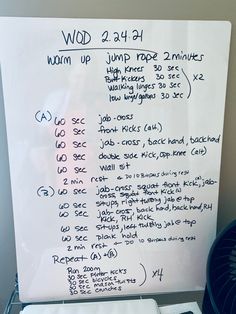 WOD 2.24.21
warm up jump rope 2 minutes
High Knees 30 sec
Butt Kickers 30 sec
Walking lunges 30 sec
low lunge/gallops 30 sec
x2
(A) 60 sec jab-cross
60 sec front kicks (alt.)
60 sec jab-cross, back hand, back hand
60 sec double side kick, opp. knee (alt)
60 sec wall sit
2 min rest ← DO 10 Burpees during rest
(B) 60 sec jab-cross squat front kick, jab-
cross, squat front kick
60 sec situps, right twisting jab @ top
60 sec jab-cross, back hand, back hand, RH
kick, RH kick
60 sec situps, left twisting jab @ top
60 sec plank hold
2 min rest ← DO 10 Burpees during rest
Repeat (A) + (B)
Run 200m
30 sec flutter kicks
30 sec bicycles
30 sec mason twists
30 sec crunches
x4